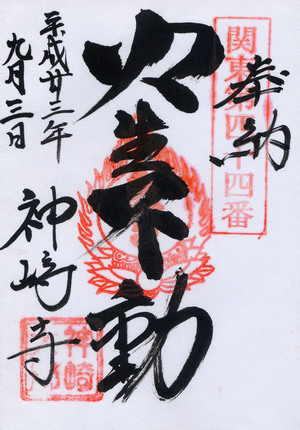 奉納
関東第四十四番
火奉不動
平成廿三年
九月三日
神崎寺
神崎